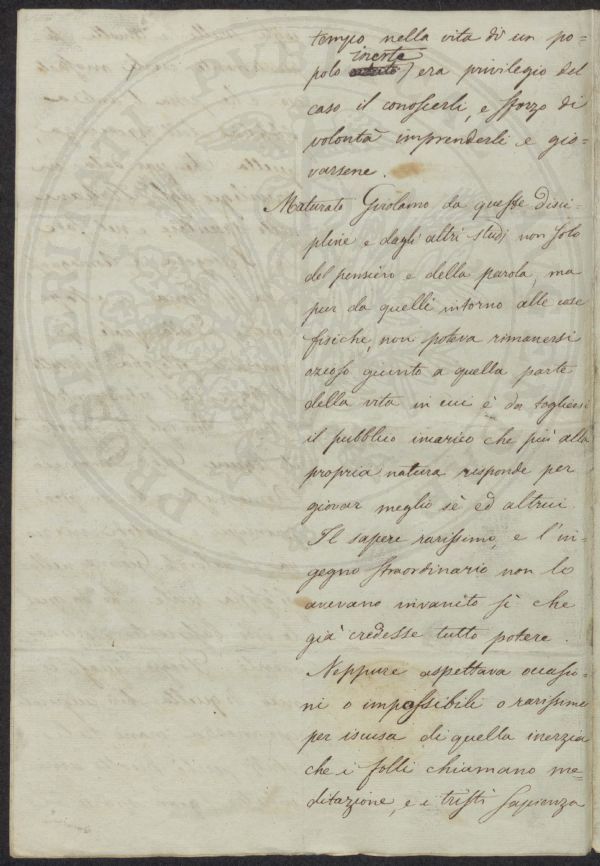 tempo nella vita di un po-
polo inerte, era privilegio del
caso il conoscerli, e sforzo di
volontà imprenderli e gio-
varsene.
Maturato Girolamo da queste disci-
pline e dagli altri studj non solo
del pensiero e della parola, ma
pur da quelli intorno alle cose
fisiche, non poteva rimanersi
ozioso giunto a quella parte
della vita in cui è da togliersi
il pubblico incarico che più alla
propria natura risponde per
giovar meglio sè ed altrui.
Il sapere rarissimo, e l'in-
gegno straordinario non lo
avevano invanito sì che
già credesse tutto potere.
Neppure aspettava occasio-
ni o impossibili o rarissime
per iscusa di quella inerzia
che i folli chiamano me-
ditazione, e i tristi sapienza